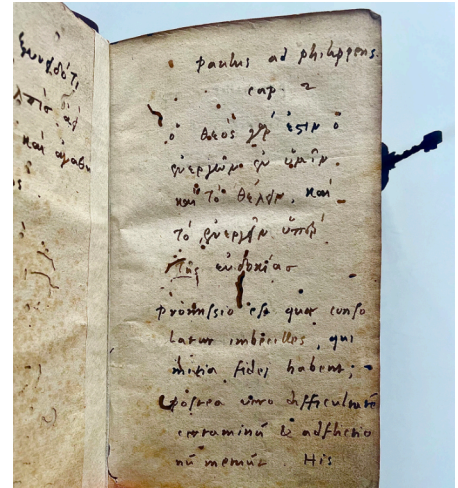 καὶ
paulus ad philippens.
cap 2
ὁ θεὸς γάρ ἐστιν ὁ
ἐνεργῶν ἐν ὑμῖν.
καὶ τὸ θέλειν. καὶ
τὸ ἐνεργεῖν ὑπὲρ
τῆς εὐδοκίασ
promissio est quae conso
latur imbecilles, qui
initia fidei habent;
postea vero difficultatē
certaminū & adflictio
nū metuūt. His